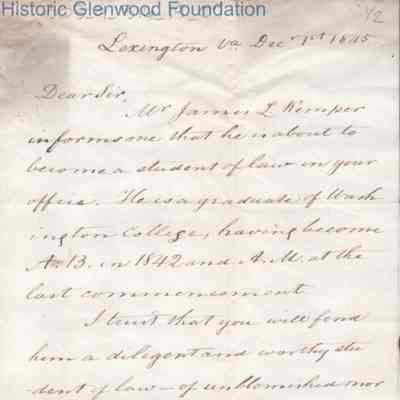 Historic Glenwood Foundation
1/2
Lexington Va Decr 1st 1845
Dear Sir,
Mr James L Kemper
informs me that he is about to
become a student of law in your
office. He is a graduate of Wash
ington College, having become
A.B. in 1842 and A.M. at the
last commencement
I trust that you will find
him a diligent and worthy stu
-dent of law - of unblemished mor